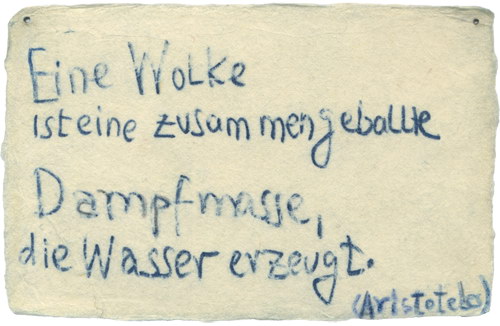 Eine Wolke
ist eine zusammengeballte
Dampfmasse,
die Wasser erzeugt.
(Aristoteles)